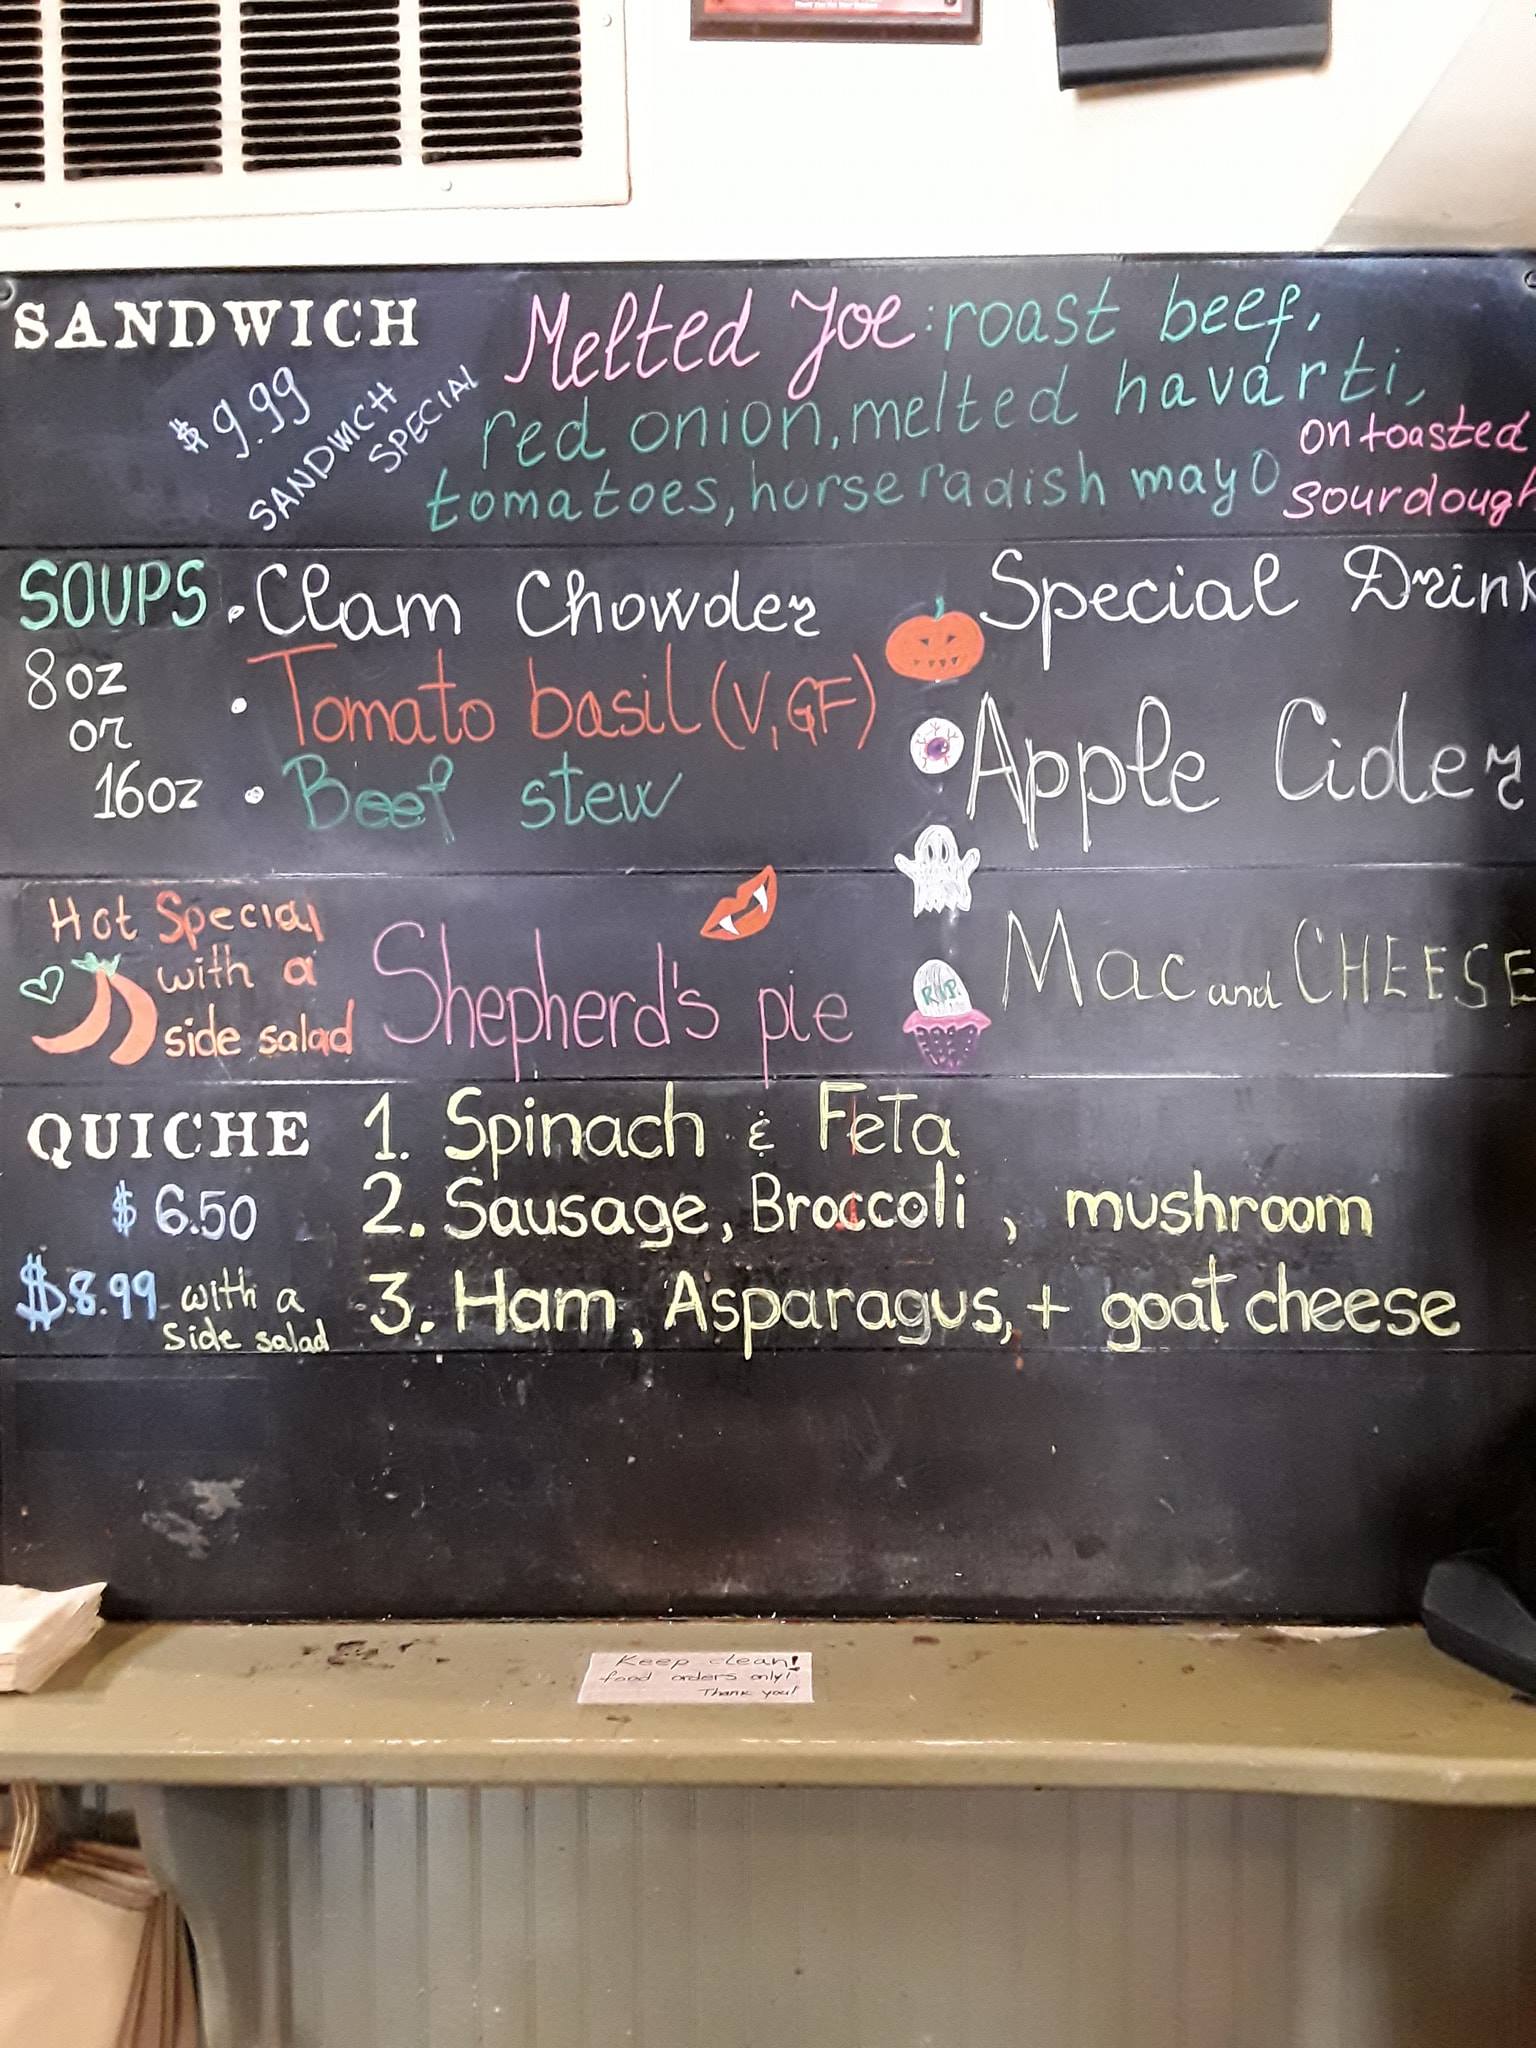 SANDWICH
$9.99
SANDWICH
SPECIAL
Melted Joe: roast beef,
red onion, melted havarti,
tomatoes, horseradish mayo
on toasted
sourdough
SOUPS
8oz
or
16oz
• Clam Chowder
• Tomato basil (V, GF)
• Beef stew
Special Drink
Apple Cider
Hot Special
with a
side salad
Shepherd's pie
R.I.P.
Mac and CHEESE
QUICHE
$6.50
$8.99 with a
side salad
1. Spinach & Feta
2. Sausage, Broccoli, mushroom
3. Ham, Asparagus, + goat cheese
Keep clean!
food orders only!
Thank you!